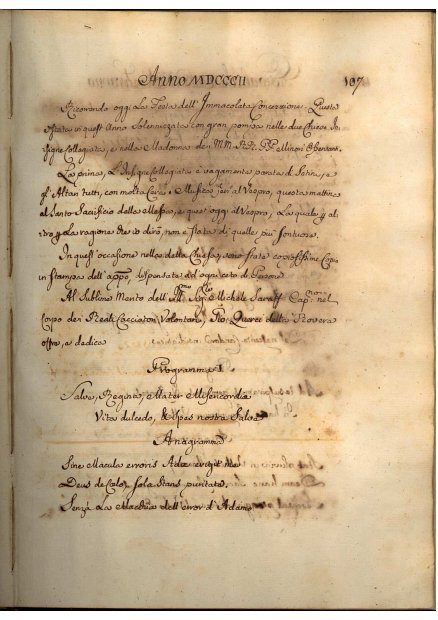 Anno MDCCCII 107
Ricorrendo oggi La Festa dell' Immacolata Concezione. Questa
è stata in quest' Anno Solennizzata con gran pompa nelle due Chiese In-
signe Collegiata, e nella Madonna de MM. RR. PP. Minori Osservan.
La prima, L'Insigne Collegiata è vagamente parata di Setina, e
gl' Altari tutti, con molta Cera. Musica jeri al Vespro, questa mattina
al Santo Sacrificio della Messa, e quest' oggi al Vespro, La quale
La ragione che io dirò, non è stata di quelle più Sontuose.
In quest' occasione nella detta Chiesa, sono state Copie
in stampa dell' dispensate ad ogni ceto di Persone.
Al Sublime Merto dell' Sig. Michele Cap. nel
Corpo dei Reali Cacciatori Volontari, Quarci della Rovera
offre, e dedica
Programma I
Salve, Regina, Mater Misericordia
Vita dulcedo, & Spes nostra Salve
Anagramma
Sine Macula erroris Adæ erigit me
Deus de Cœlo, sola stans puritate.
Senza La Macchia dell' error d' Adamo